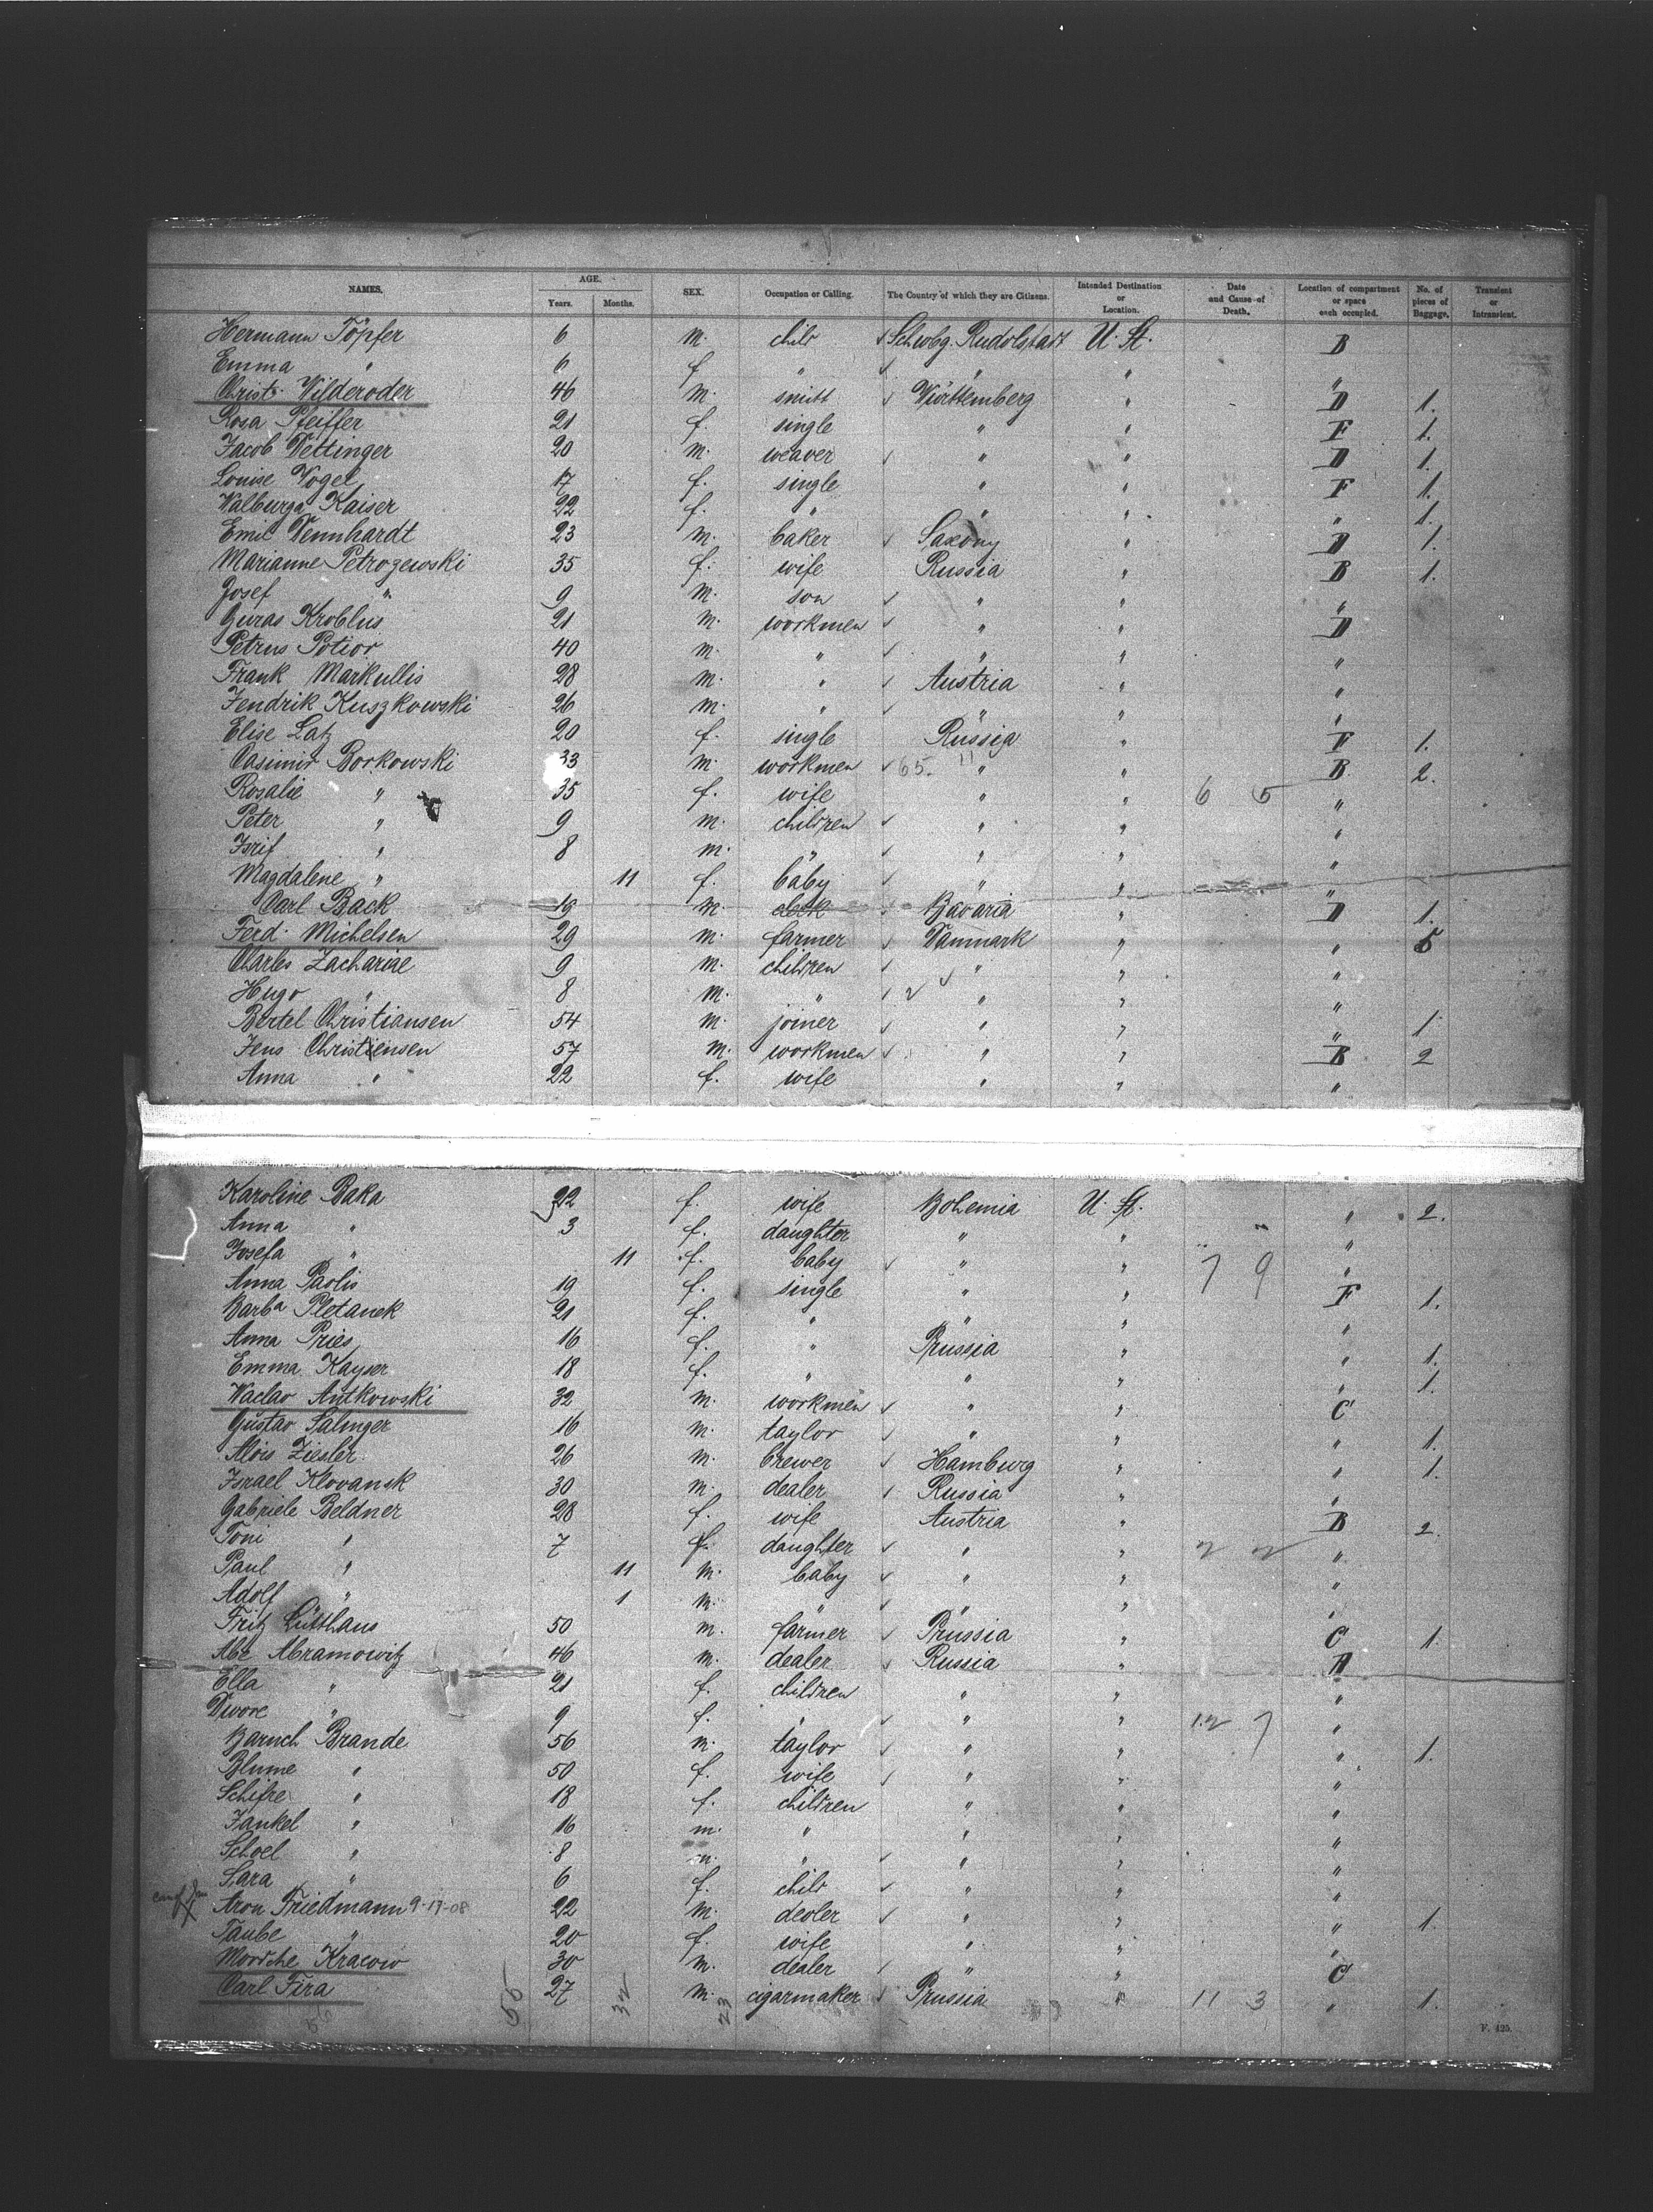 NAMES. AGE. Years. Months. SEX. Occupation or Calling. The Country of which they are Citizens. Intended Destination or Location. Date and Cause of Death. Location of compartment or space each occupied. No. of pieces of Baggage. Transient or Intransient.
Hermann Töpfer 6 m. child Schwbg. Rudolstadt U. St. B
Emma " 6 f " " " "
Christ. Wilderoder 46 m. smitt Württemberg " D 1.
Rosa Pfeiffer 21 f. single " " F 1.
Jacob Dettinger 20 m. weaver " " D 1.
Louise Vogel 17 f. single " " F 1.
Walburga Kaiser 22 f. " " " " 1.
Emil Dennhardt 23 m. baker Saxony " D 1.
Marianne Petrozewski 35 f. wife Russia " B 1.
Josef " 9 m. son " " "
Juras Kroblus 21 m. workmen " " D
Petrus Potior 40 m. " " " "
Frank Markullis 28 m. " Austria " "
Jendrik Kuszkowski 26 m. " " " "
Elise Latz 20 f. single Russia " F 1.
Casimir Borkowski 33 m. workmen 65. 11 " " B 2.
Rosalie " 35 f. wife " " 6 5 "
Peter " 9 m. children " " "
" 8 m. " " " "
Magdalene " 11 f. baby " " "
Carl Back 19 m. clerk Bavaria " D 1.
Ferd. Michelsen 29 m. farmer Danmark " " 5
Charles Zachariae 9 m. children " " "
Hugo " 8 m. " " " "
Bertel Christiansen 54 m. joiner " " " 1
Jens Christiensen 57 m. workmen " " B 2
Anna " 22 f. wife " " "
Karoline Baka 22 f. wife Bohemia U. St. " 2.
Anna " 3 f. daughter " " "
Josefa " 11 f. baby " " 7 9 "
Anna Paolis 19 f. single " " F 1.
Barba Pletanek 21 f. " " " "
Anna Pries 16 f. " Prussia " " 1.
Emma Kayser 18 f. " " " " 1.
Waclav Antkowski 32 m. workmen " " C
Gustav Salinger 16 m. taylor " " " 1.
Alois Ziesler 26 m. brewer Hamburg " " 1.
Israel Klovansk 30 m. dealer Russia " "
Gabriele Beldner 28 f. wife Austria " B 2.
Toni " 7 f. daughter " " 2 2 "
Paul " 11 m. baby " " "
Adolf " 1 m. " " " "
Fritz Lütthaus 50 m. farmer Prussia " C 1.
Abe Abramowitz 46 m. dealer Russia "
Ella " 21 f. children " " "
Dwore " 9 f. " " " 12 7 "
Baruch Brande 56 m. taylor " " " 1.
Blume " 50 f. wife " " "
Schifre " 18 f. children " " "
Jankel " 16 m. " " " "
Schoel " 8 m. " " " "
Sara " 6 f. child " " "
Aron Friedmann 9-17-08 22 m. dealer " " " 1.
Taube " 20 f. wife " " "
Mordche Kracow 30 m. dealer " " C
Carl Fira 27 m. cigarmaker Prussia " 11 3 " 1.
56 55 32 23
F. 425.